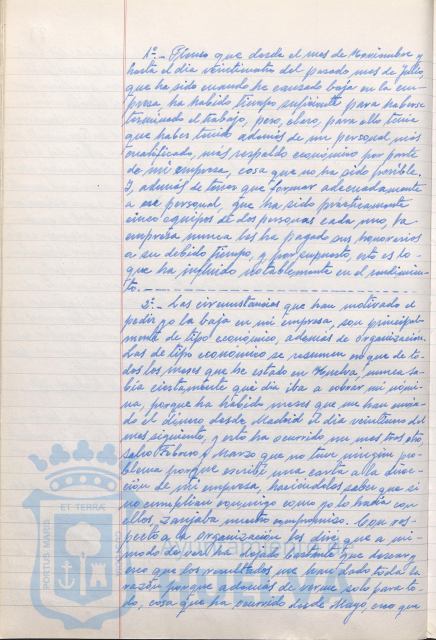 1º.- Pienso que desde el mes de Noviembre y
hasta el día veinticuatro del pasado mes de Julio,
que ha sido cuando he causado baja en la em-
presa, ha habido tiempo suficiente para haberse
terminado el trabajo, pero, claro, para ello tenia
que haber tenido además de un personal más
cualificado, más respaldo económico por parte
de mi empresa, cosa que no ha sido posible.
Y, además de tener que formar adecuadamente
a ese personal, que ha sido prácticamente
cinco equipos de dos personas cada uno, la
empresa nunca les ha pagado sus honorarios
a su debido tiempo, y por supuesto, esto es lo-
que ha influido notablemente en el rendimien-
to.
2º.- Las circunstancias que han motivado el
pedir yo la baja en mi empresa, son principal-
mente de tipo económico, además de organización.
Las de tipo economico se resumen en que de to-
dos los meses que he estado en Huelva, nunca sa-
bía ciertamente qué día iba a cobrar mi nómi-
na, porque ha habido meses que me han envia-
do el dinero desde Madrid el día veintiuno del
mes siguiente, y esto ha ocurrido un mes tras otro,
salvo Febrero y Marzo que no tuve ningún pro-
blema porque escribí una carta a la direc-
ción de mi empresa, haciéndoles saber que si
no cumplian conmigo como yo lo hacía con
ellos, zanjaba nuestro compromiso. Con res-
pecto a la organización les dire que a mi-
modo de ver ha dejado bastante que desear y
creo que los resultados me han dado toda la
razón porque además de verme solo para to-
do, cosa que ha ocurrido desde Mayo, creo que
ET TERRAE
PORTUS MARIS